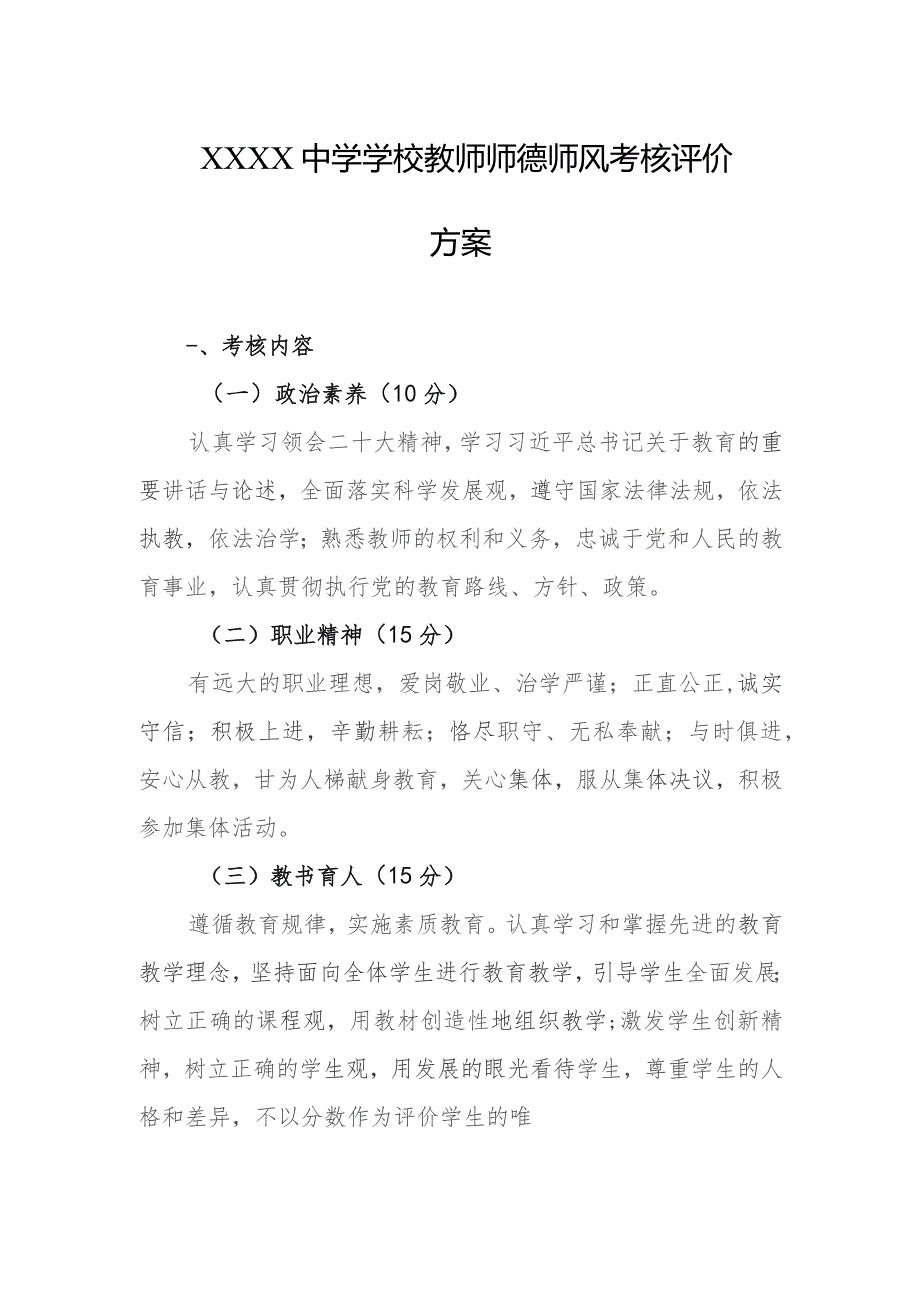 XXXX中学学校教师师德师风考核评价
方案
–、考核内容
（一）政治素养（10分）
认真学习领会二十大精神,学习习近平总书记关于教育的重
要讲话与论述，全面落实科学发展观，遵守国家法律法规，依法
执教，依法治学;熟悉教师的权利和义务，忠诚于党和人民的教
育事业，认真贯彻执行党的教育路线、方针、政策。
（二）职业精神（15分）
有远大的职业理想，爱岗敬业、治学严谨；正直公正,诚实
守信；积极上进，辛勤耕耘；恪尽职守、无私奉献；与时俱进，
安心从教，甘为人梯献身教育，关心集体，服从集体决议，积极
参加集体活动。
（三）教书育人（15分）
遵循教育规律，实施素质教育。认真学习和掌握先进的教育
教学理念，坚持面向全体学生进行教育教学，引导学生全面发展;
树立正确的课程观，用教材创造性地组织教学;激发学生创新精
神，树立正确的学生观，用发展的眼光看待学生，尊重学生的人
格和差异，不以分数作为评价学生的唯